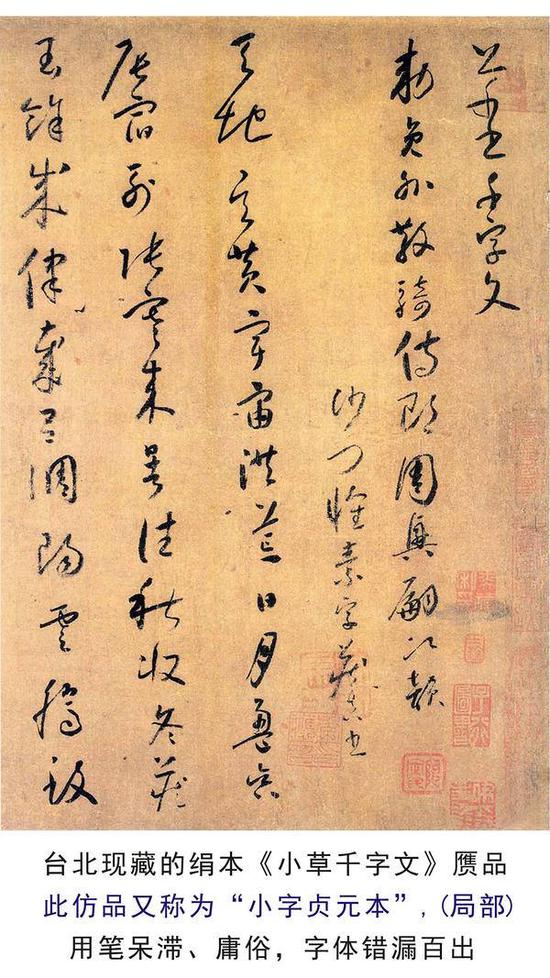 千字文
勅員外散騎侍郎周興嗣次韻
沙門懷素字藏真書
天地玄黃宇宙洪荒日月盈昃
辰宿列張寒來暑往秋收冬藏
閏餘成律歲呂調陽雲騰致
台北现藏的绢本《小草千字文》赝品
此仿品又称为“小字贞元本”，(局部)
用笔呆滞、庸俗，字体错漏百出